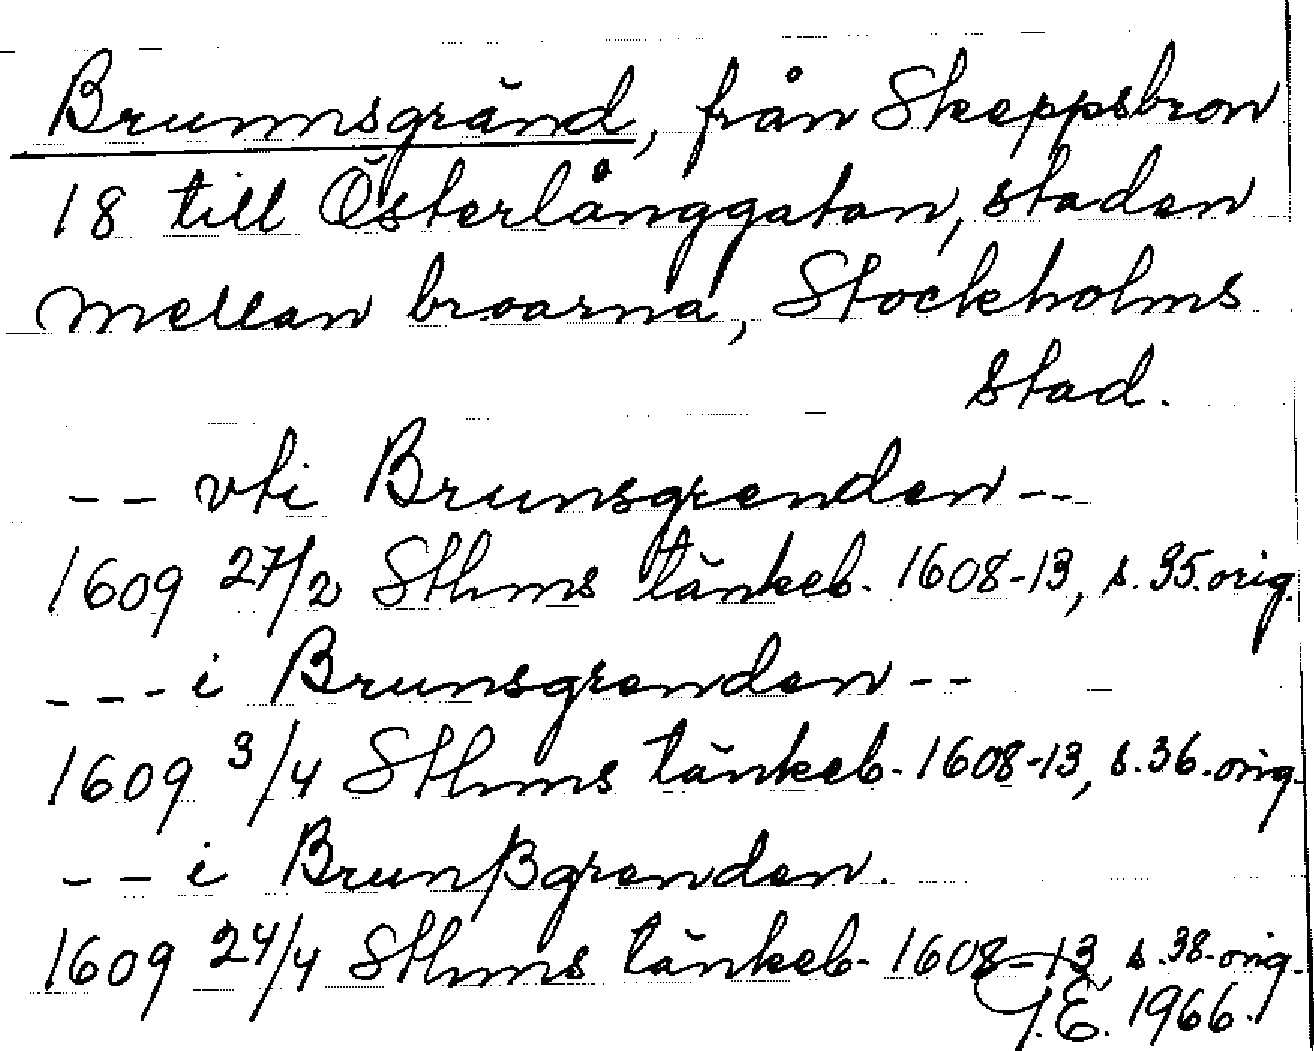 Brunnsgränd, från Skeppsbron
18 till Österlånggatan, staden
mellan broarna, Stockholms
stad.
-- vti Brunsgrenden --
1609 27/2 Sthms tänkeb. 1608-13, s. 35. orig.
--- i Brunsgrenden --
1609 3/4 Sthms tänkeb. 1608-13, s. 36. orig.
-- i Brunßgrenden.
1609 24/4 Sthms tänkeb. 1608-13, s. 38. orig.
G.E. 1966.